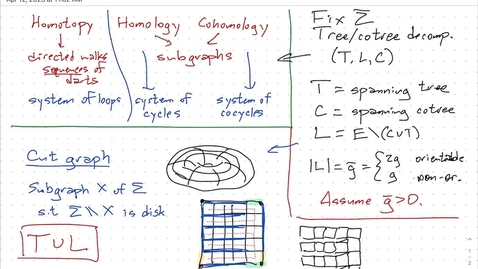 Apr 12, 2023 at 11:02 AM
Homotopy
Homology
Cohomology
directed walks
sequences of
darts
subgraphs
system of loops
system of
cycles
system of
cocycles
Fix Σ
Tree/cotree decomp.
(T, L, C)
T = spanning tree
C = spanning cotree
L = E\(C∪T)
|L| = g̅ = { 2g orientable
g non-or.
Assume g̅>0.
Cut graph
Subgraph X of Σ
s.t Σ\\X is disk
T∪L